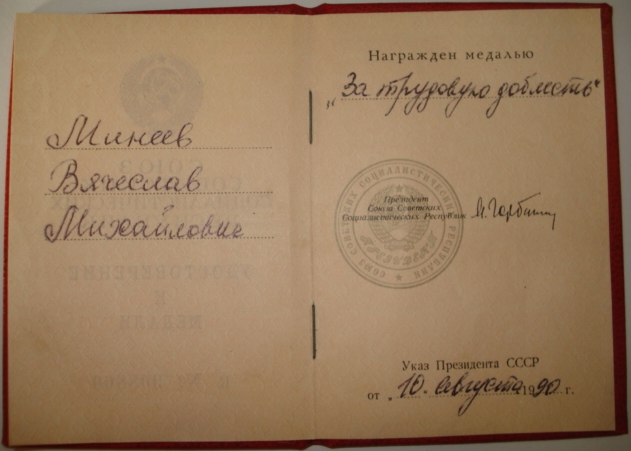 Минеев
Вячеслав
Михайлович
Награжден медалью
„За трудовую доблесть“
Президент
Союза Советских
Социалистических Республик
М. Горбачев
Указ Президента СССР
от „10. августа 1990 г.